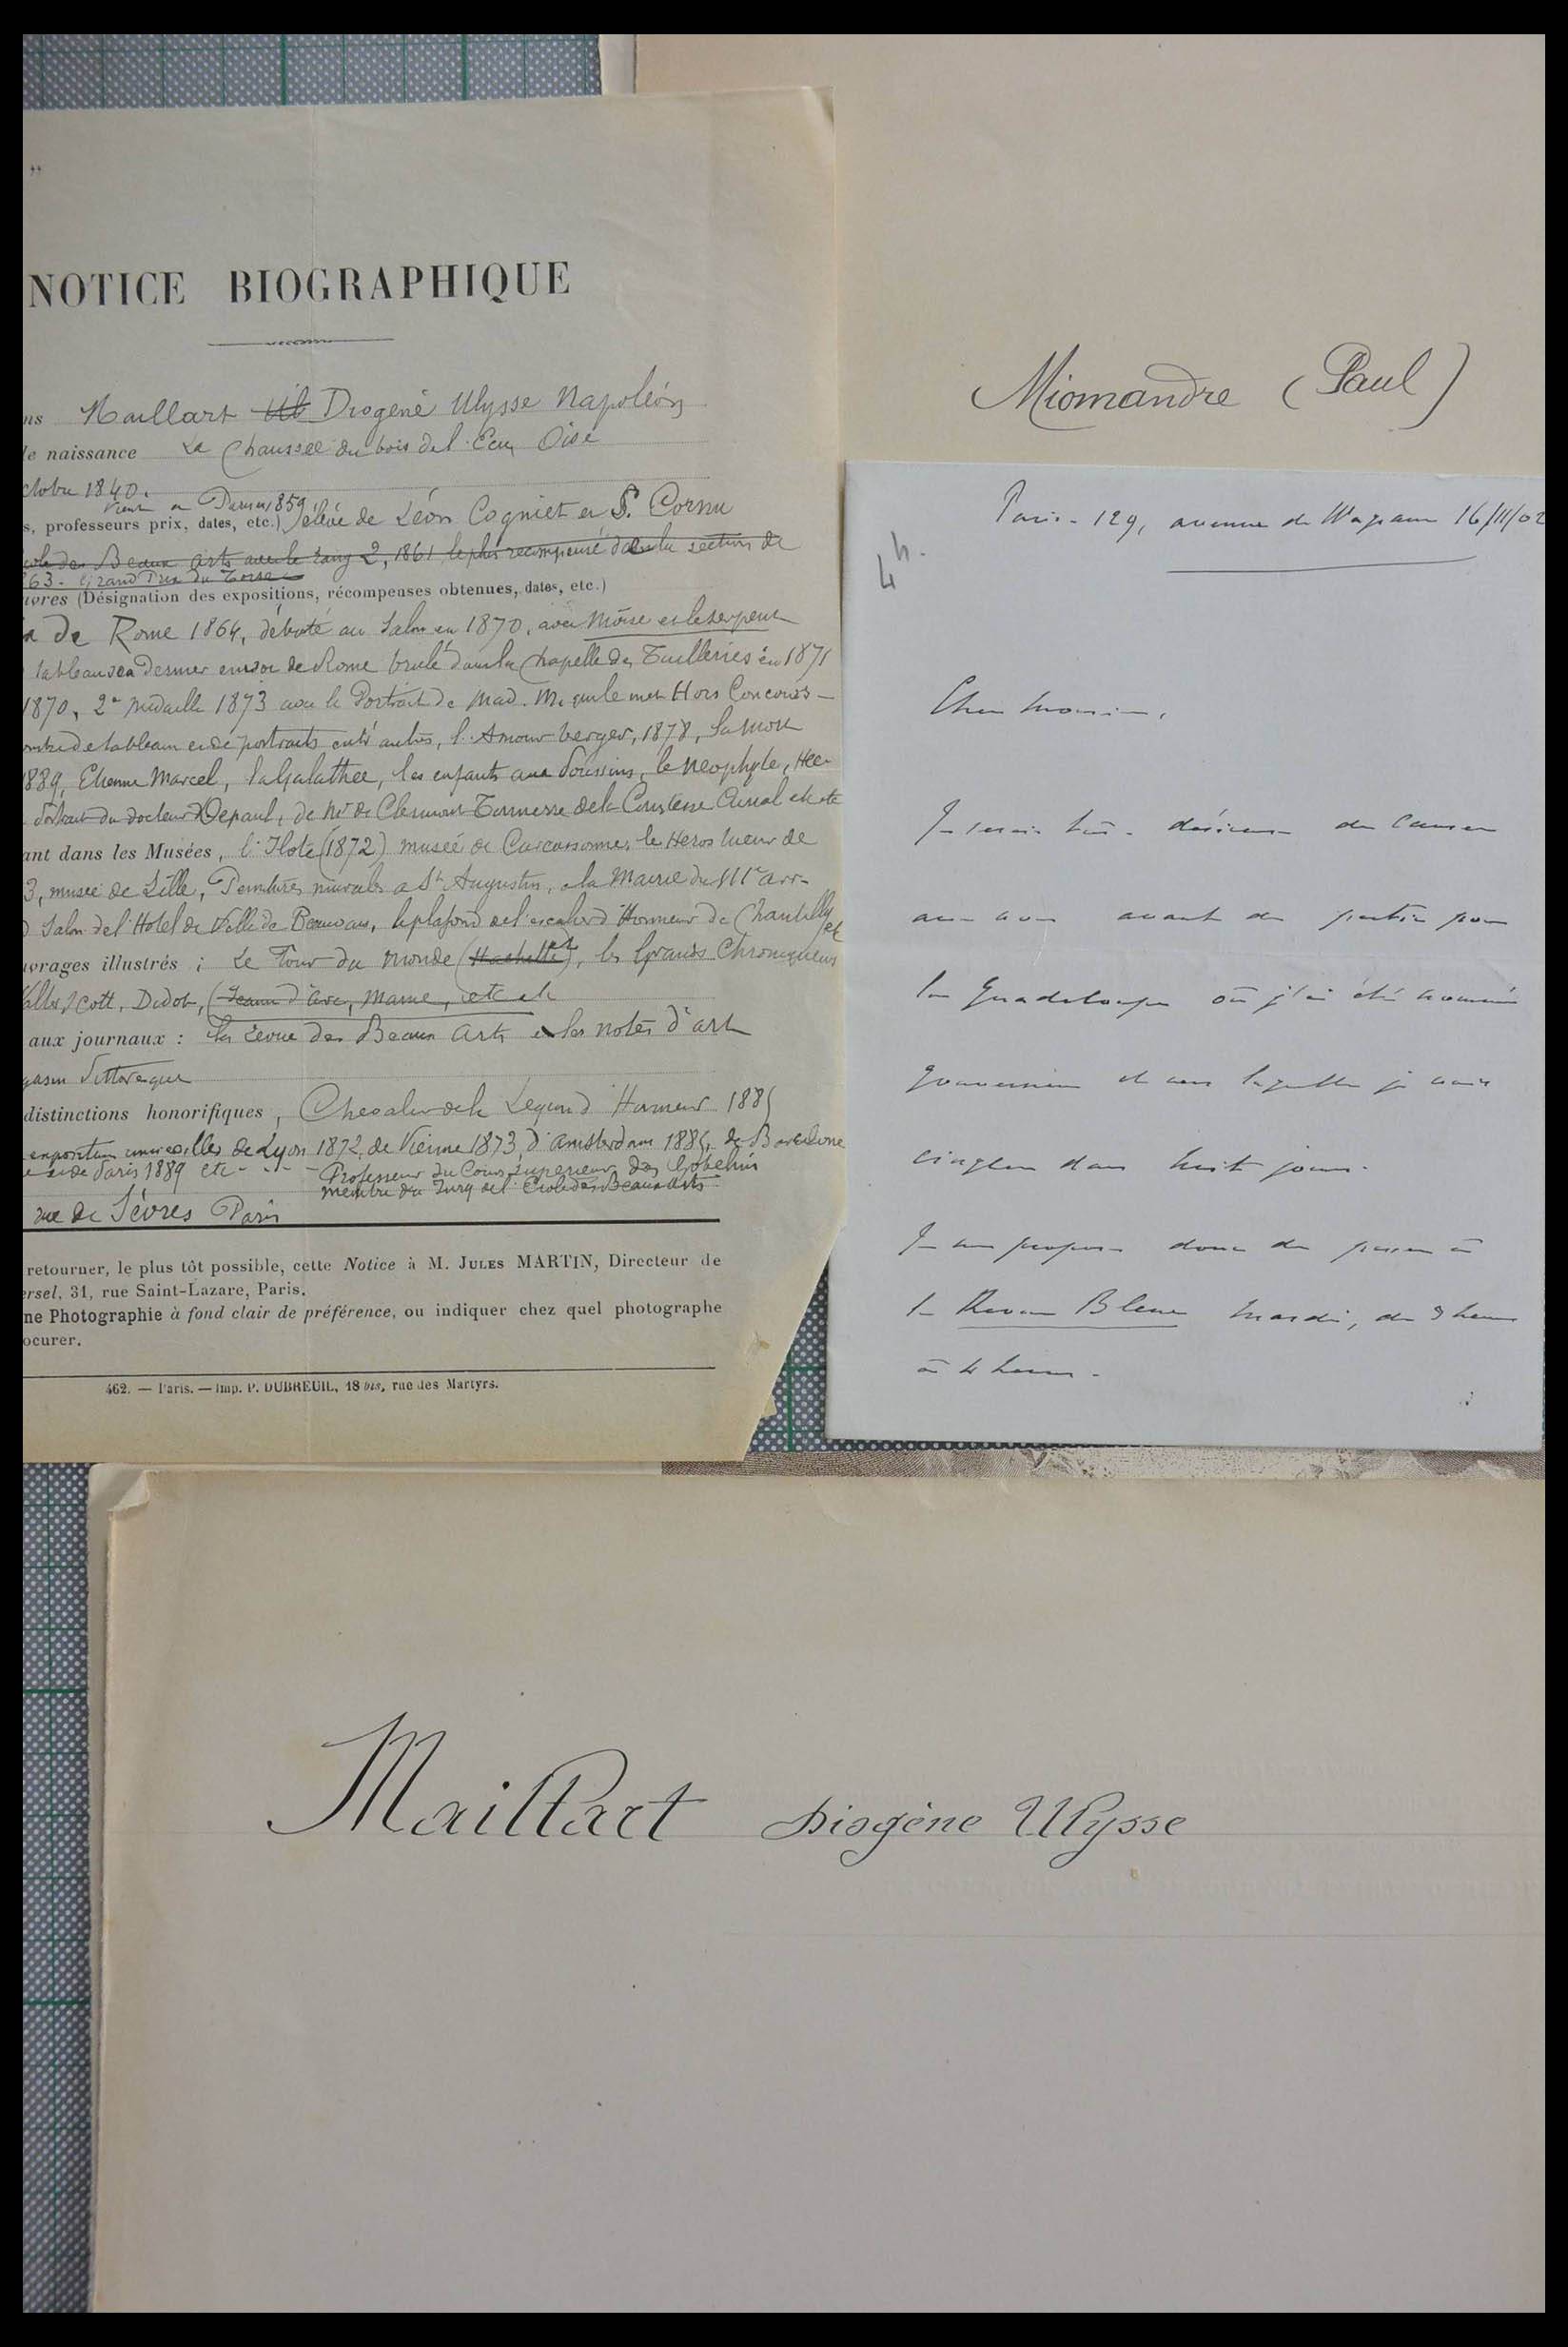 "
NOTICE BIOGRAPHIQUE
ns Maillart Diogène Ulysse Napoléon
le naissance La Chaussée du bois de l'Ecu, Oise
ctobre 1840.
vient a Paris 1859
s, professeurs prix, dates, etc.) élève de Léon Cogniet et S. Cornu
cole des Beaux arts avec le rang 2, 1861 le plus recompensé dans la section de
63. Grand Prix du Torse
uvres (Désignation des expositions, récompenses obtenues, dates, etc.)
de Rome 1864, débuté au Salon en 1870, avec Moïse et le serpent
tableau son dernier envoi de Rome brulé dans la Chapelle des Tuilleries en 1871
1870, 2e médaille 1873 avec le Portrait de Mad. M. qui le met Hors Concours -
de tableaux et de portraits entr'autres, l'Amour berger, 1878, la mort
1889, Etienne Marcel, la Galathée, les enfants aux Poussins, le néophyte,
Portrait du docteur Depaul, de Mr de Clermont Tonnerre de la Comtesse
ant dans les Musées, l'Ilote (1872) musée de Carcassonne, le Heros tueur de
3, musée de Lille, Peintures murales a St Augustin, a la Mairie du IIIe arr-
Salon de l'Hotel de Ville de Beauvais, le plafond de l'escalier d'Honneur de Chantilly
et
uvrages illustrés : Le Tour du monde (Hachette), les Grands Chroniqueurs
Walter Scott, Didot, (Jeanne d'arc, Mame, etc etc
aux journaux : la revue des Beaux Arts et les notes d'art
gasin Pittoresque
distinctions honorifiques, Chevalier de la Légion d'Honneur 1885
exposition universelles de Lyon 1872, de Vienne 1873, d'Amsterdam 1885, de Barcelone
de Paris 1889 etc - - - -
Professeur du Cours supérieur des Gobelins
membre du Jury de l'Ecole des Beaux Arts
rue de Sèvres Paris
retourner, le plus tôt possible, cette Notice à M. JULES MARTIN, Directeur de
ersel, 31, rue Saint-Lazare, Paris.
ne Photographie à fond clair de préférence, ou indiquer chez quel photographe
ocurer.
462. — Paris. — Imp. P. DUBREUIL, 18 bis, rue des Martyrs.
Miomandre (Paul)
Paris - 129, avenue de Wagram 16/11/02
4h.
Cher Monsieur,
Je serais très désireux de causer
avec vous avant de partir pour
la Guadeloupe où j'ai été nommé
gouverneur et vers laquelle je vais
cingler dans huit jours.
Je me propose donc de passer à
la Revue Bleue mardi, de 3 heures
à 4 heures.
Maillart Diogène Ulysse